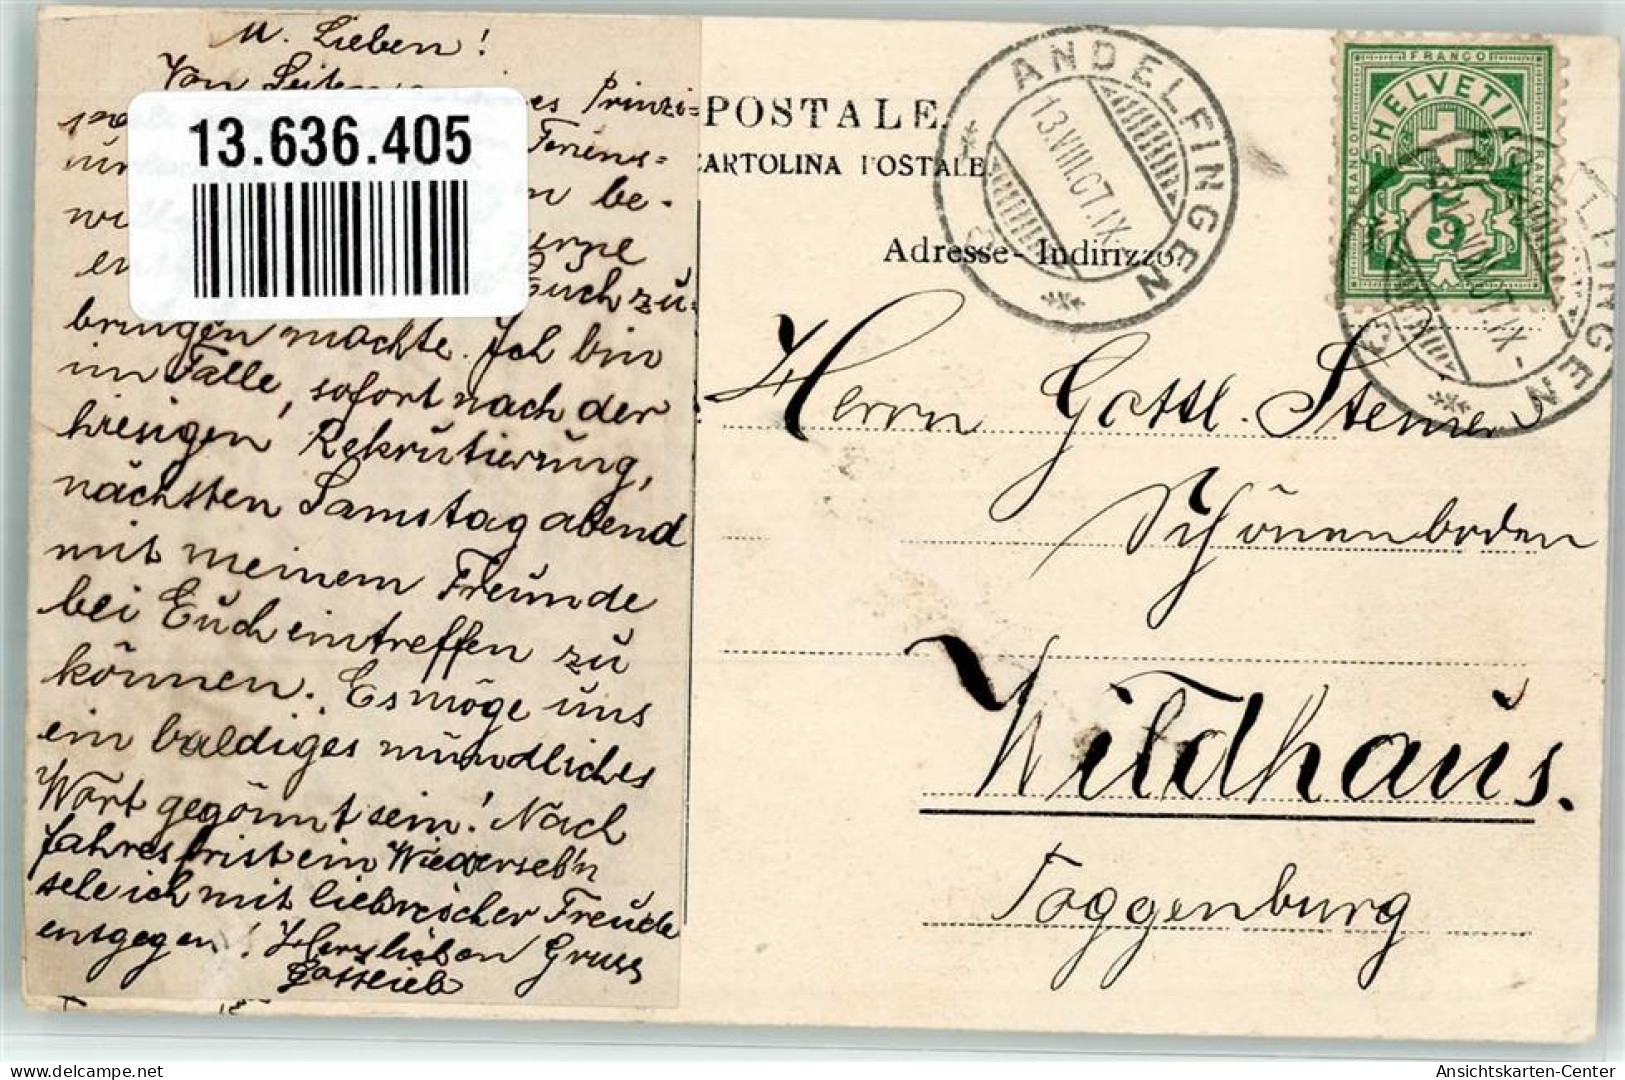 M. Lieben!
Von Seiten es Prinzi=
Feriens=
be-
wi
en Euch zu=
bringen möchte. Ich bin
im Falle, sofort nach der
hiesigen Rekrutierung,
nächsten Samstag abend
mit meinem Freunde
bei Euch eintreffen zu
können. Es möge uns
ein baldiges mündliches
Wort gegönnt sein! Nach
Jahresfrist ein Wiederseh'n
sehe ich mit liebreicher Freude
entgegen! Herzlichen Gruss
Gottlieb
13.636.405
POSTALE
CARTOLINA POSTALE
Adresse - Indirizzo
ANDELFINGEN
13.VIII.07.IX
FRANCO
HELVETIA
FRANCO
FRANCO
5
LFINGEN
VIII.07.IX-
Herrn Gottl. Steiner
Schönenboden
Wildhaus.
Toggenburg
Ansichtskarten-Center
delcampe.net